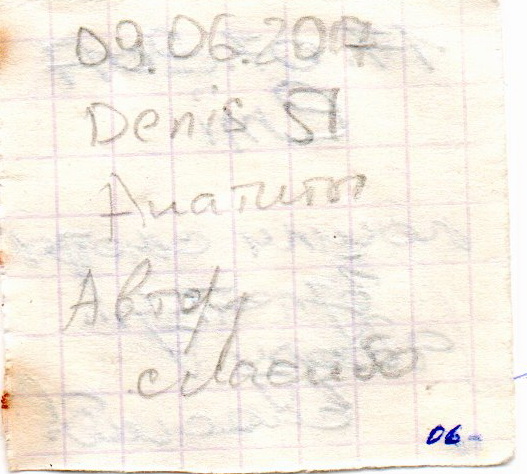 09.06.2017
Denis ЯI
Апатиты
Автору
спасибо
06